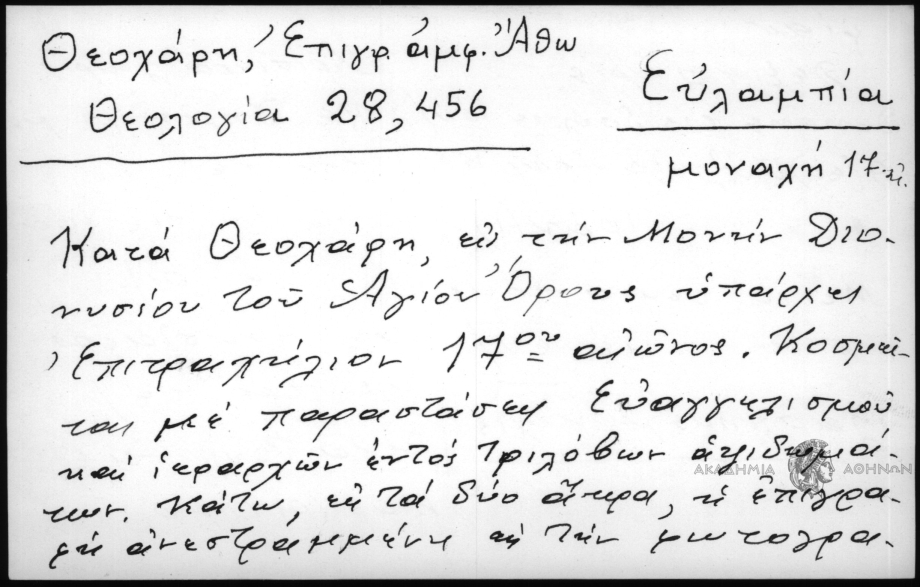 Θεοχάρη, Ἐπιγρ. ἀμφ. Ἄθω
Θεολογία 28, 456
Εὐλαμπία
μοναχή 17 αἰ.
Κατά Θεοχάρη, εἰς τήν Μονήν Διο-
νυσίου τοῦ Ἁγίου Ὄρους ὑπάρχει
Ἐπιτραχήλιον 17ου αἰῶνος. Κοσμεῖ-
ται μέ παραστάσεις Εὐαγγελισμοῦ
καί ἱεραρχῶν ἐντός τριλόβων ἁψιδωμά-
των. Κάτω, εἰς τά δύο ἄκρα, ἡ ἐπιγρα-
φή ἀνεστραμμένη εἰς τήν φωτογρα-
ΑΚΑΔΗΜΙΑ ΑΘΗΝΩΝ